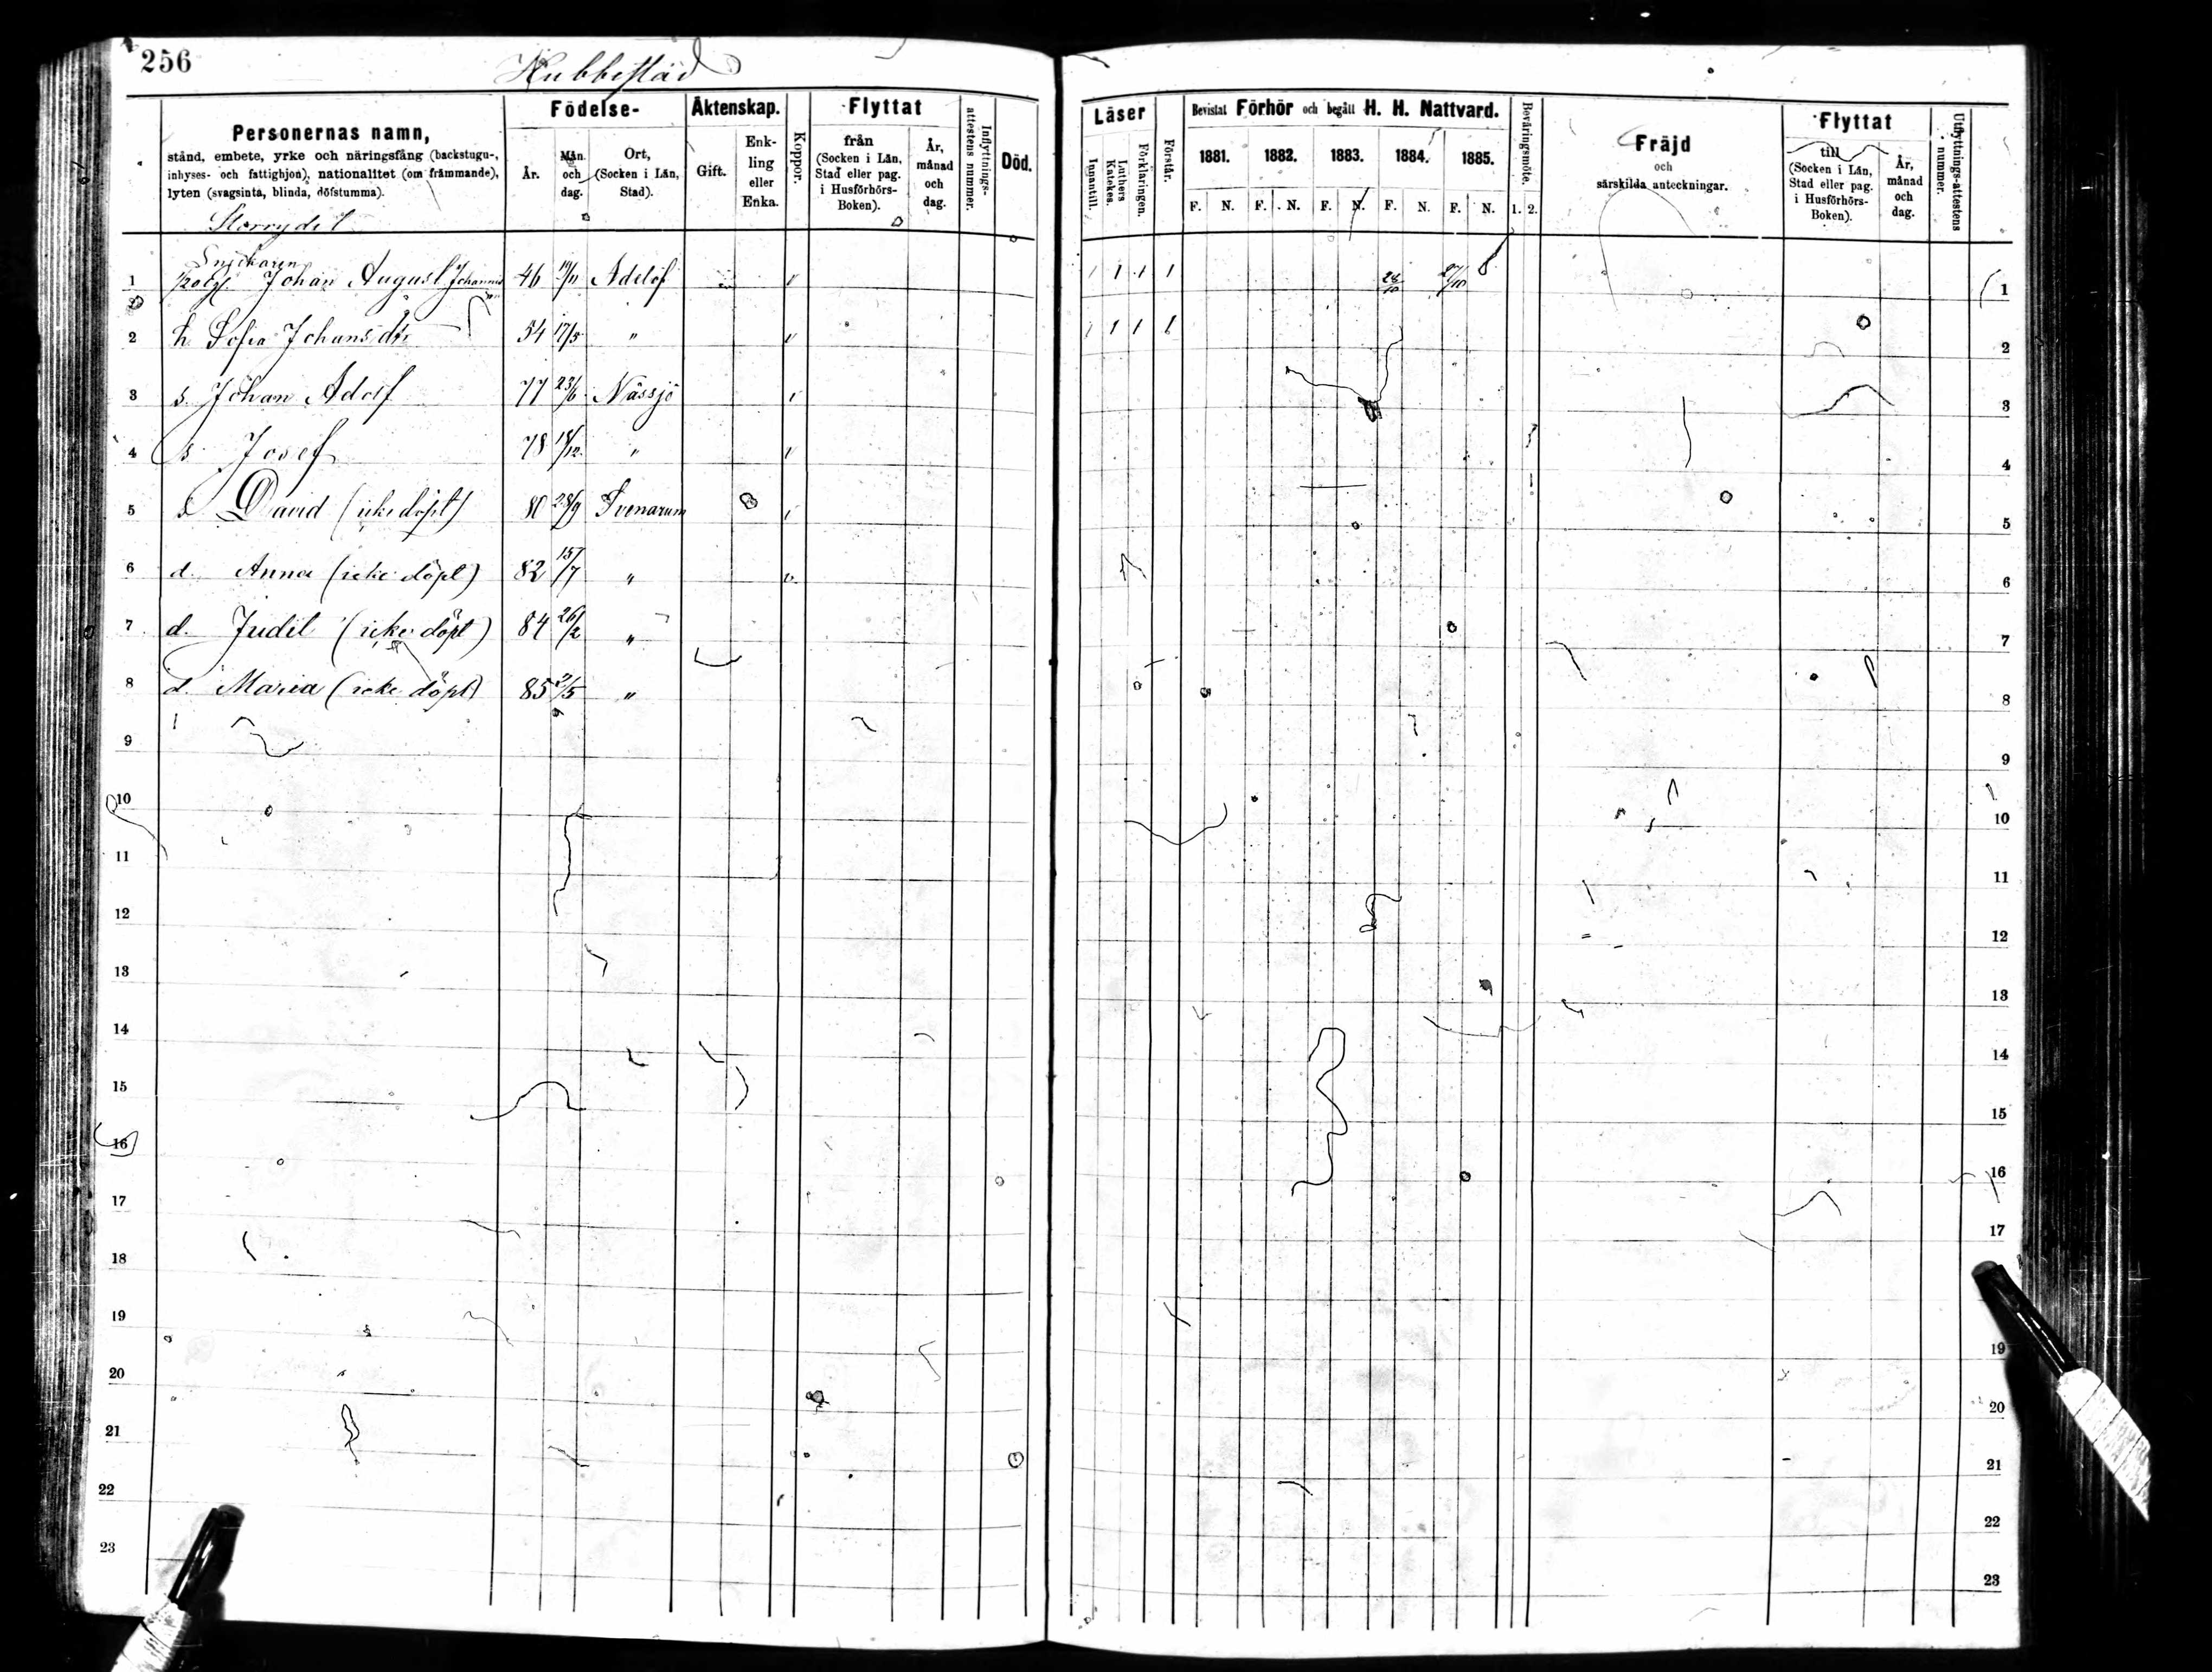 256
Kubbestad
Personernas namn,
stånd, embete, yrke och näringsfång (backstugu-,
inhyses- och fattighjon), nationalitet (om främmande),
lyten (svagsinta, blinda, döfstumma).
Födelse-
År.
Mån. och dag.
Ort, (Socken i Län, Stad).
Äktenskap.
Gift.
Enk-ling eller Enka.
Koppor.
Flyttat
från (Socken i Län, Stad eller pag. i Husförhörs-Boken).
År, månad och dag.
Inflyttnings-attestens nummer.
Död.
Läser
Innantill.
Luthers Katekes.
Förklaringen.
Förstår.
Bevistat Förhör och begått H. H. Nattvard.
1881. 1882. 1883. 1884. 1885.
F. N. F. N. F. N. F. N. F. N.
Beväringsmöte.
1. 2.
Fräjd
och
särskilda anteckningar.
Flyttat
till (Socken i Län, Stad eller pag. i Husförhörs-Boken).
År, månad och dag.
Utflyttnings-attestens nummer.
Snickaren
1 Johan August 46 Adelöf 1 1 1 1 28/10 27/10 8 1
2 h. Sofia Johansdtr 54 17/5 " 1 1 1 1 2
3 s. Johan Adolf 77 23/6 Nässjö 3
4 s. Josef 78 18/12 " 4
5 s David (icke döpt) 80 28/9 Svenarum 5
6 d. Anna (icke döpt) 82 15/7 " v. 6
7 d. Judit (icke döpt) 84 26/2 " 7
8 d. Maria (icke döpt) 85 2/5 " 8
9 9
10 10
11 11
12 12
13 13
14 14
15 15
16 16
17 17
18
19 19
20 20
21 21
22 22
23 23